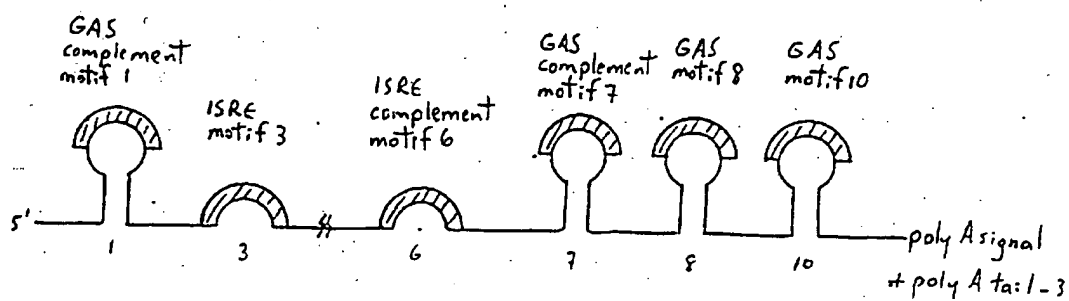 GAS
complement
motif 1
ISRE
motif 3
ISRE
complement
motif 6
GAS
complement
motif 7
GAS
motif 8
GAS
motif 10
5'
poly A signal
+ poly A tail-3
1
3
6
7
8
10